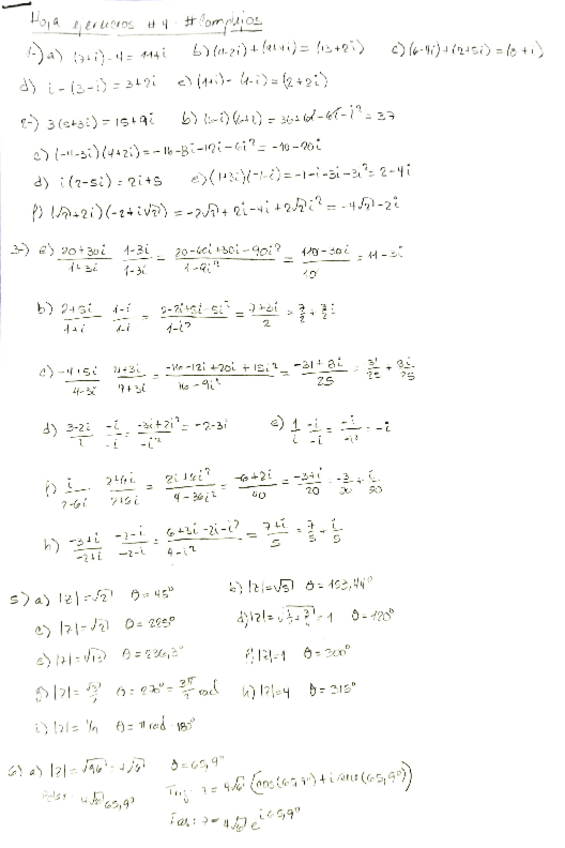 Hoja ejercicios #4 #Complejos
1-) a) (7+i)-4 = 11+i b) (11-2i)+(2+4i) = (13+2i) c) (6-4i)+(2+5i) = (8+i)
d) i-(3-i) = 3+2i e) (1+i)-(1-i) = (2+2i)
2-) 3(5+3i) = 15+9i b) (6-i)(6+i) = 36+6i-6i-i² = 37
c) (-4-3i)(4+2i) = -16-8i-12i-6i² = -10-20i
d) i(2-5i) = 2i+5 e) (1+3i)(-1-i) = -1-i-3i-3i² = 2-4i
f) (√2+2i)(-2+i√2) = -2√2+2i-4i+2√2i² = -4√2-2i
3-) a) 20+30i/1+3i 1-3i/1-3i = 20-60i+30i-90i²/1-9i² = 110-30i/10 = 11-3i
b) 2+5i/1+i 1-i/1-i = 2-2i+5i-5i²/1-i² = 7+3i/2 = 7/2+3/2i
c) -4+5i/4-3i 4+3i/4+3i = -16-12i+20i+15i²/16-9i² = -31+8i/25 = 31/25+8i/25
d) 3-2i/i -i/-i = -3i+2i²/-i² = -2-3i e) 1/i -i/-i = -i/-i² = -i
f) i/2-6i 2+6i/2+6i = 2i+6i²/4-36i² = -6+2i/40 = -3+i/20 = -3/20+i/20
h) -3+i/-2+i -2-i/-2-i = 6+3i-2i-i²/4-i² = 7+i/5 = 7/5+i/5
5) a) |z| = √2 θ = 45° b) |z| = √5 θ = 153,44°
c) |z| = √2 θ = 225° d) |z| = = 1 θ = 120°
e) |z| = √13 θ = 236,3° f) |z| = 1 θ = 300°
g) |z| = θ = 270° = 3π/2 rad h) |z| = 4 θ = 315°
i) |z| = θ = π rad 180°
6) a) |z| = √96 = 4√6 θ = 65,9°
4√6 65,9° z = 4√6 (cos(65,9°)+i sen(65,9°))
z = 4√6 e^i65,9°